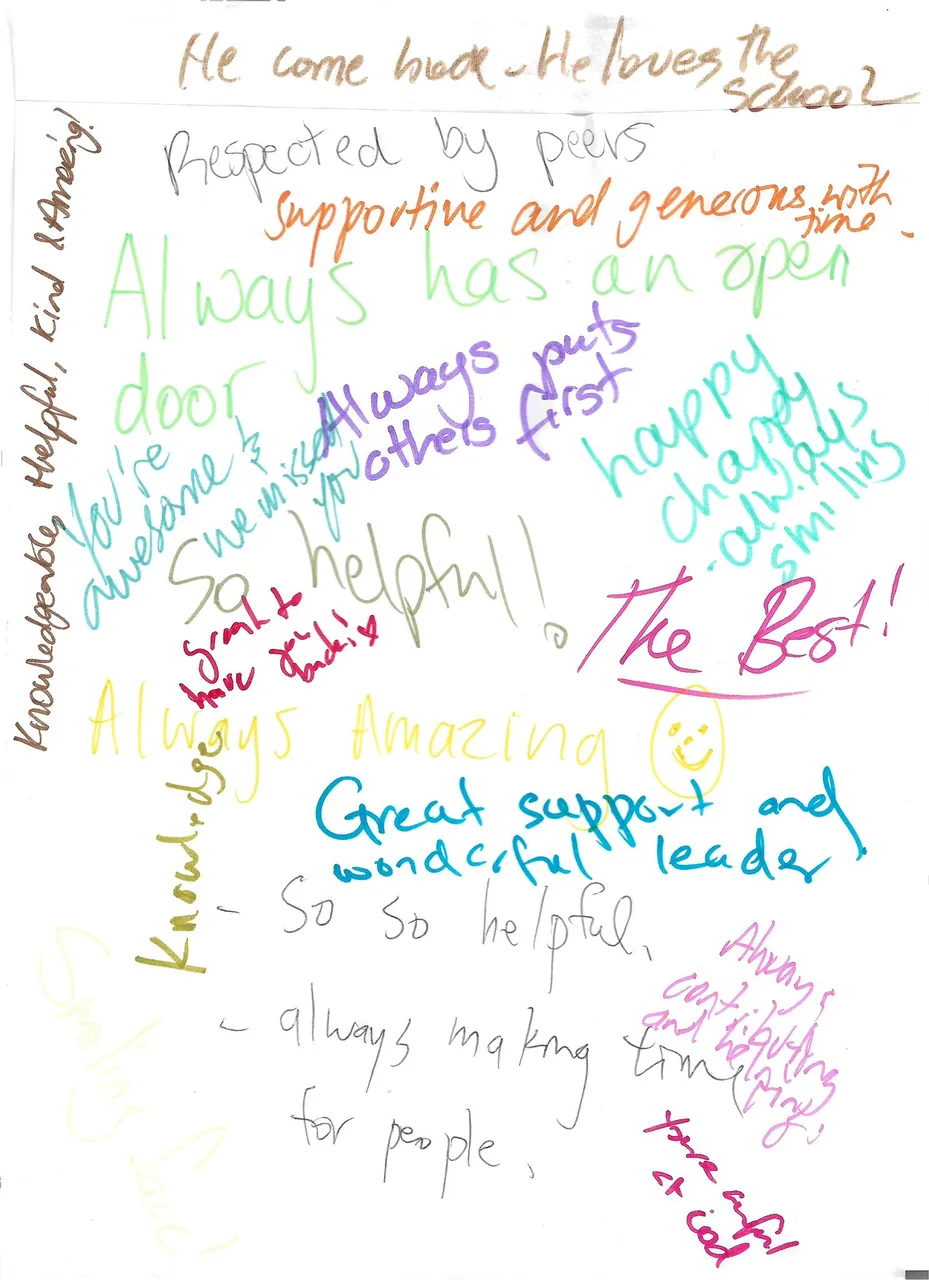 He come back - He loves the
school
Knowledgeable, Helpful, Kind & Amazing!
Respected by peers
supportive and generous with
time.
Always has an open
door
Always puts
others first
happy
chappy
always
smiling
You're
awesome &
we missed
you
So helpful!
The Best!
great to
have you
back!
Always Amazing
Knowledge
Great support and
wonderful leader.
- So so helpful.
- always making time
for people.
Always
contributing
and helping
Smiling face!